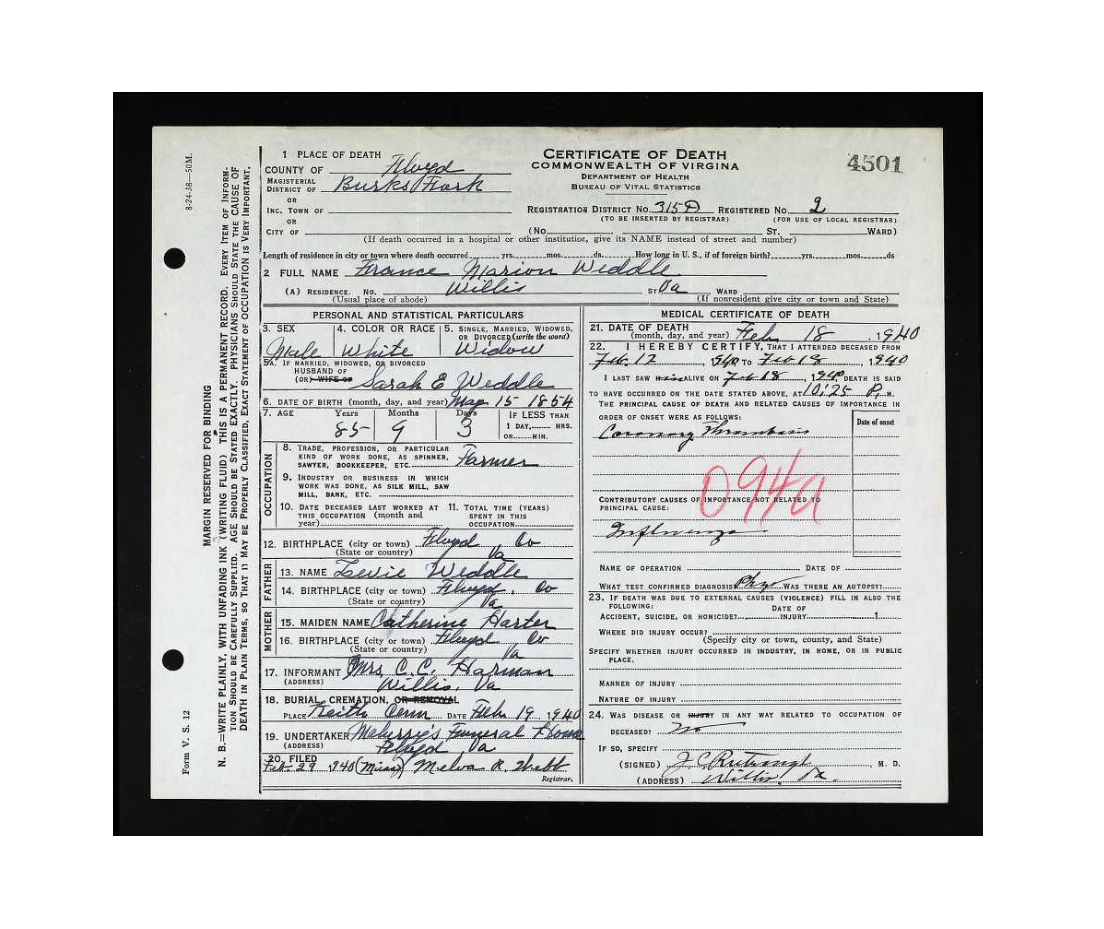 8-24-38—50M.
Form V. S. 12
MARGIN RESERVED FOR BINDING
N. B.—WRITE PLAINLY, WITH UNFADING INK (WRITING FLUID) THIS IS A PERMANENT RECORD. EVERY ITEM OF INFORM-
TION SHOULD BE CAREFULLY SUPPLIED. AGE SHOULD BE STATED EXACTLY. PHYSICIANS SHOULD STATE THE CAUSE OF
DEATH IN PLAIN TERMS, SO THAT IT MAY BE PROPERLY CLASSIFIED. EXACT STATEMENT OF OCCUPATION IS VERY IMPORTANT.
CERTIFICATE OF DEATH
COMMONWEALTH OF VIRGINIA
DEPARTMENT OF HEALTH
BUREAU OF VITAL STATISTICS
4501
1 PLACE OF DEATH
COUNTY OF Floyd
MAGISTERIAL DISTRICT OF Burks Fork
OR
INC. TOWN OF
REGISTRATION DISTRICT NO. 315D REGISTERED NO. 2
(TO BE INSERTED BY REGISTRAR) (FOR USE OF LOCAL REGISTRAR)
OR
CITY OF (NO. ST. WARD)
(If death occurred in a hospital or other institution, give its NAME instead of street and number)
Length of residence in city or town where death occurred yrs. mos. ds. How long in U. S., if of foreign birth? yrs. mos. ds
2 FULL NAME France Marion Weddle
(A) RESIDENCE. NO. Willis ST Va WARD
(Usual place of abode) (If nonresident give city or town and State)
PERSONAL AND STATISTICAL PARTICULARS
3. SEX 4. COLOR OR RACE 5. SINGLE, MARRIED, WIDOWED, OR DIVORCED (write the word)
Male White Widow
5A. IF MARRIED, WIDOWED, OR DIVORCED
HUSBAND OF
(OR) WIFE OF Sarah E Weddle
6. DATE OF BIRTH (month, day, and year) May 15 1854
7. AGE Years Months Days IF LESS THAN
1 DAY, HRS.
OR MIN.
85 9 3
OCCUPATION
8. TRADE, PROFESSION, OR PARTICULAR KIND OF WORK DONE, AS SPINNER, SAWYER, BOOKKEEPER, ETC. Farmer
9. INDUSTRY OR BUSINESS IN WHICH WORK WAS DONE, AS SILK MILL, SAW MILL, BANK, ETC.
10. DATE DECEASED LAST WORKED AT THIS OCCUPATION (month and year)
11. TOTAL TIME (YEARS) SPENT IN THIS OCCUPATION
12. BIRTHPLACE (city or town) Floyd Co
(State or country) Va
FATHER
13. NAME Levie Weddle
14. BIRTHPLACE (city or town) Floyd Co
(State or country) Va
MOTHER
15. MAIDEN NAME Catherine Harter
16. BIRTHPLACE (city or town) Floyd Co
(State or country) Va
17. INFORMANT Mrs. C. C. Harman
(ADDRESS) Willis, Va
18. BURIAL, CREMATION, OR REMOVAL
PLACE Keith Cem DATE Feb 19, 1940
19. UNDERTAKER Funeral Home
(ADDRESS) Floyd, Va
20. FILED
Feb 29, 1940 (Miss) Melva R.
Registrar.
MEDICAL CERTIFICATE OF DEATH
21. DATE OF DEATH
(month, day, and year) Feb 18, 1940
22. I HEREBY CERTIFY, THAT I ATTENDED DECEASED FROM
Feb. 12 1940 TO Feb 18, 1940
I LAST SAW ALIVE ON Feb 18, 1940 DEATH IS SAID
TO HAVE OCCURRED ON THE DATE STATED ABOVE, AT 10:25 P. M.
THE PRINCIPAL CAUSE OF DEATH AND RELATED CAUSES OF IMPORTANCE IN
ORDER OF ONSET WERE AS FOLLOWS:
Date of onset
Coronary Thrombosis
094a
CONTRIBUTORY CAUSES OF IMPORTANCE NOT RELATED TO
PRINCIPAL CAUSE:
Influenza
NAME OF OPERATION DATE OF
WHAT TEST CONFIRMED DIAGNOSIS Phy WAS THERE AN AUTOPSY?
23. IF DEATH WAS DUE TO EXTERNAL CAUSES (VIOLENCE) FILL IN ALSO THE
FOLLOWING: DATE OF
ACCIDENT, SUICIDE, OR HOMICIDE? INJURY 1
WHERE DID INJURY OCCUR?
(Specify city or town, county, and State)
SPECIFY WHETHER INJURY OCCURRED IN INDUSTRY, IN HOME, OR IN PUBLIC
PLACE.
MANNER OF INJURY
NATURE OF INJURY
24. WAS DISEASE OR INJURY IN ANY WAY RELATED TO OCCUPATION OF
DECEASED? No
IF SO, SPECIFY
(SIGNED) J. C. , M. D.
(ADDRESS) Willis, Va.